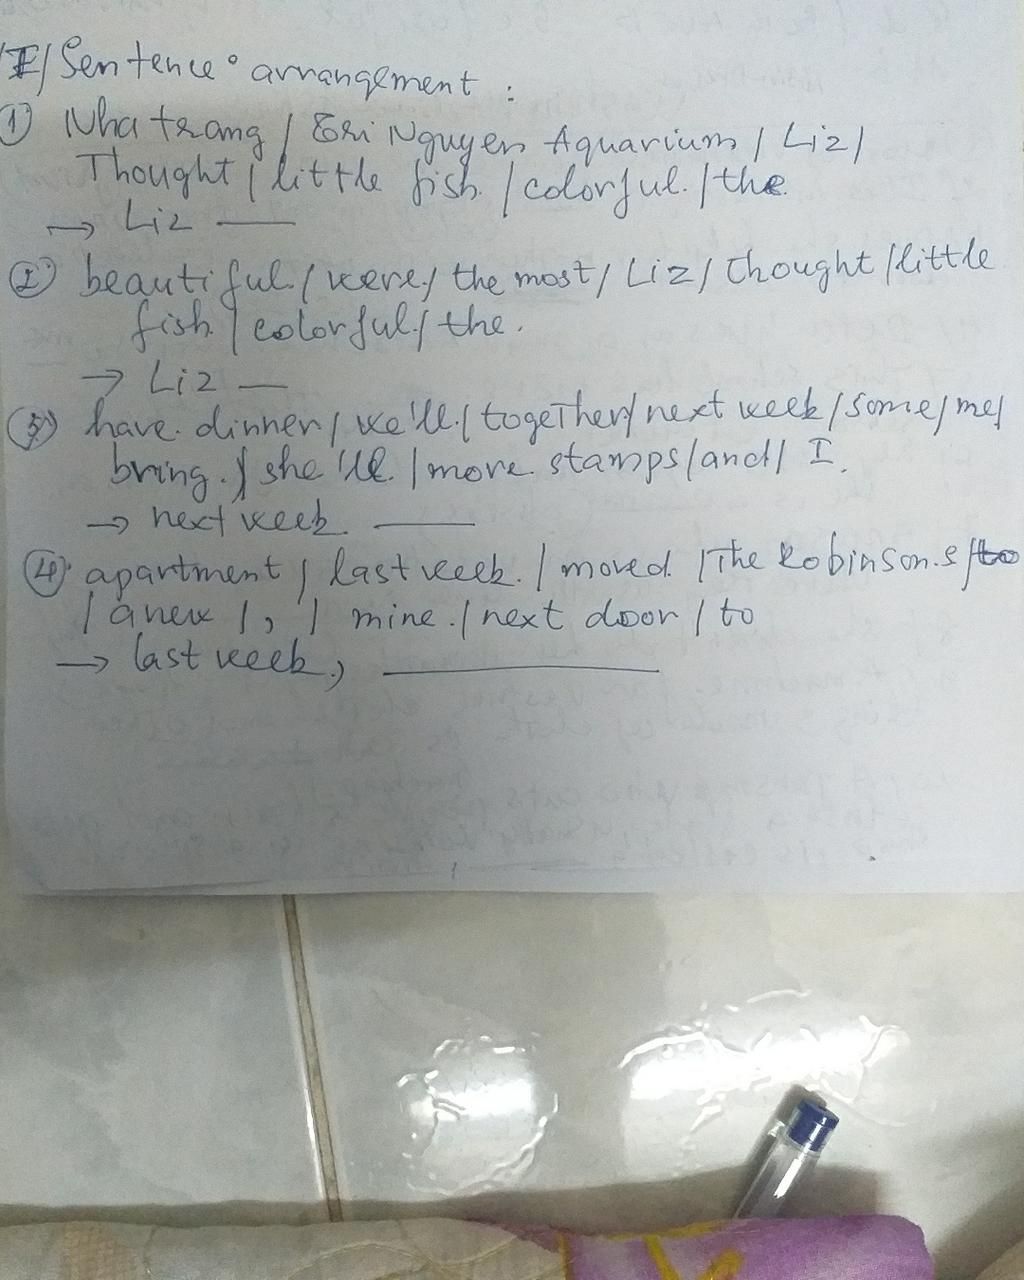 I/ Sentence arrangement :
① Nha trang / Tri Nguyen Aquarium / Liz /
Thought / little fish / colorful. / the
→ Liz ___
② beautiful / were / the most / Liz / thought / little
fish / colorful / the.
→ Liz __
③ have dinner / we'll / together / next week / some / me /
bring / she'll / more stamps / and / I.
→ next week ___
④ apartment / last week / moved / The Robinsons / to
/ a new / , / mine / next door / to
→ last week, ___